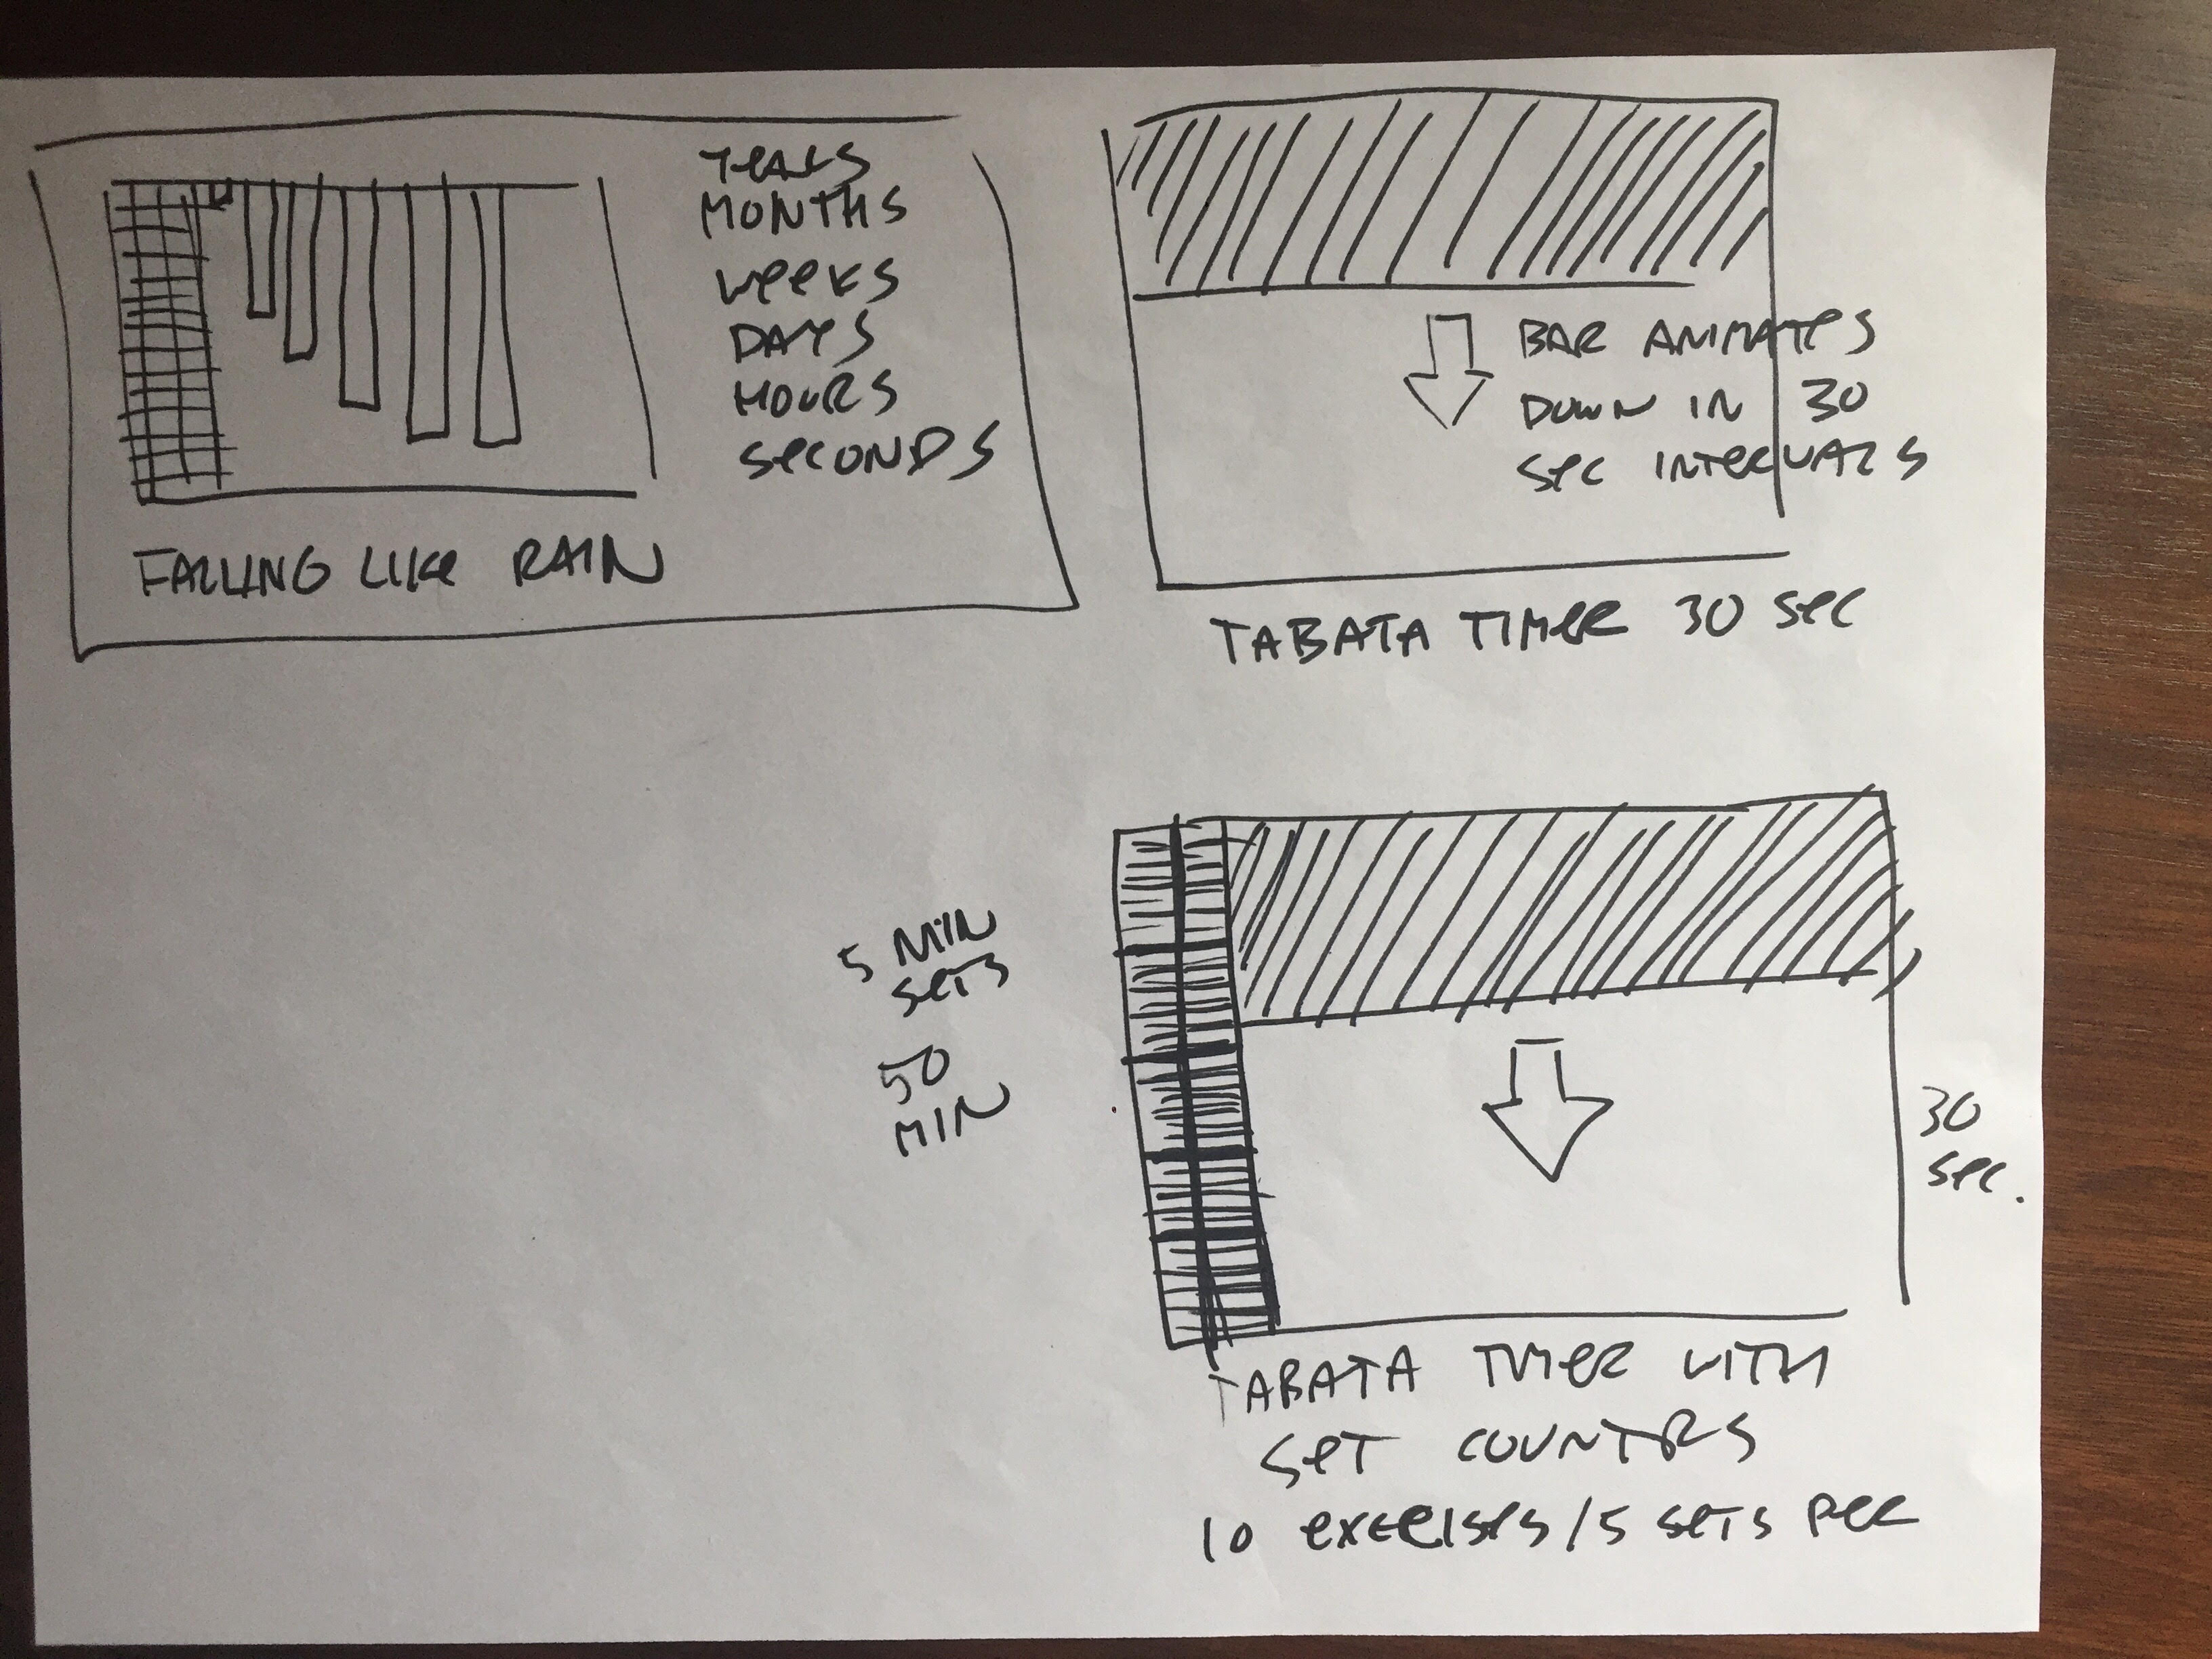 YEARS
MONTHS
WEEKS
DAYS
HOURS
SECONDS
FALLING LIKE RAIN
BAR ANIMATES
DOWN IN 30
SEC INTERVALS
TABATA TIMER 30 SEC
5 MIN
SETS
50
MIN
30
SEC.
TABATA TIMER WITH
SET COUNTRS
10 EXCERISES/5 SETS PER